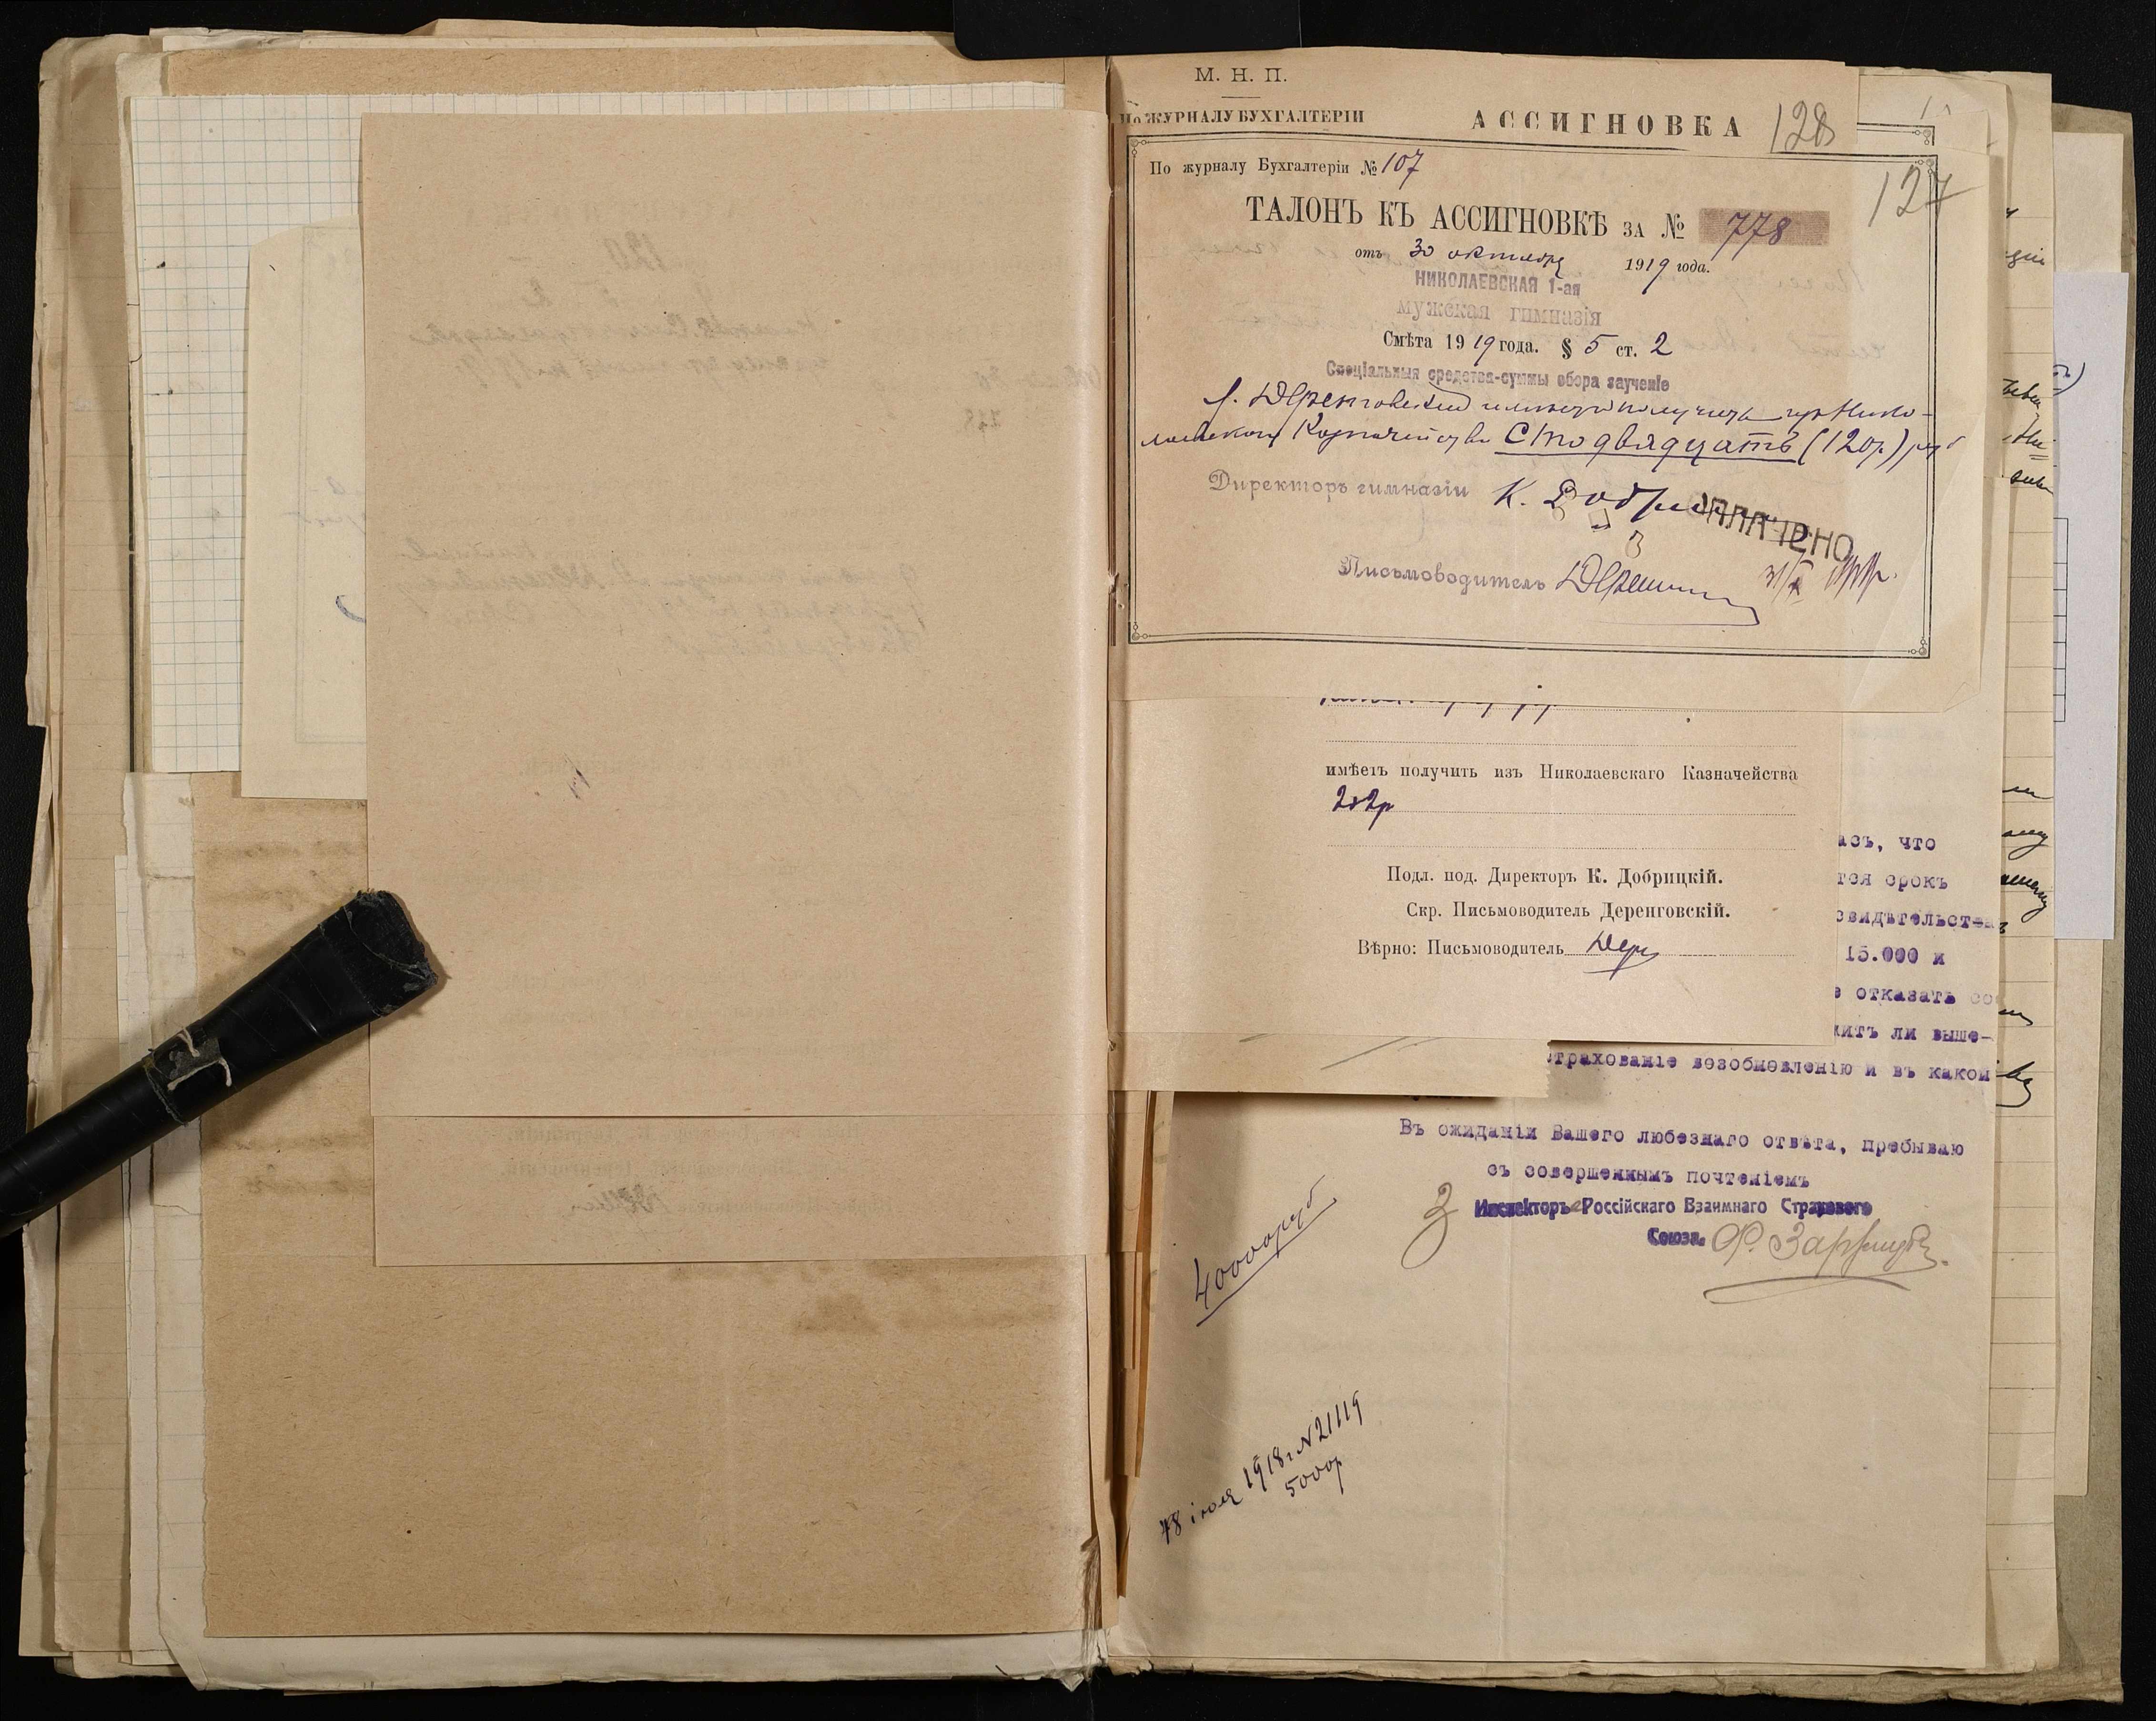 М. Н. П.
По ЖУРНАЛУ БУХГАЛТЕРІИ
АССИГНОВКА
128
По журналу Бухгалтеріи № 107
127
ТАЛОНЪ КЪ АССИГНОВКѢ ЗА № 778
отъ 30 октября 1919 года.
НИКОЛАЕВСКАЯ 1-ая
мужская гимназія
Смѣта 1919 года. § 5 ст. 2
Спеціальныя средства-суммы сбора за ученіе
г. Деренговскій имѣетъ получить изъ Нико-
лаевского Казначейства Сто двадцать (120 р.) руб
Директоръ гимназіи К. Добрицкій
ОПЛАЧЕНО
Письмоводитель
имѣетъ получить изъ Николаевскаго Казначейства
282р
Подл. под. Директоръ К. Добрицкій.
Скр. Письмоводитель Деренговскій.
Вѣрно: Письмоводитель Дер
асъ, что
тся срокъ
свидѣтельства
15.000 и
е отказать со
жить ли выше-
страхованіе возобновленію и въ какой
Въ ожиданіи Вашего любезнаго отвѣта, пребываю
съ совершеннымъ почтеніемъ
Инспекторъ Россійскаго Взаимнаго Страхового
Союза.
40000 руб
18 іюля 1918 г N 21119
5000р